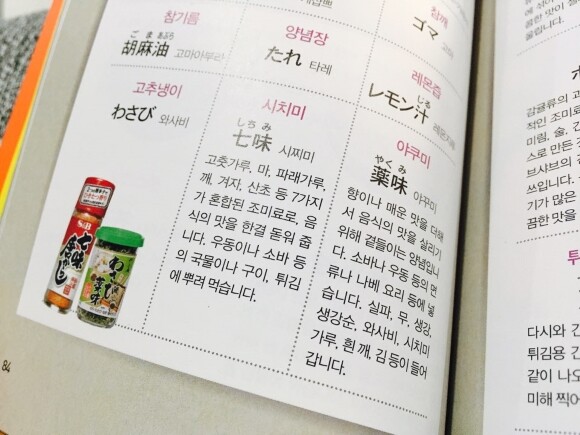 참기름
ごま あぶら
胡麻油 고마아부라
양념장
たれ 타레
참깨
ゴマ 고마
고추냉이
わさび 와사비
시치미
しちみ
七味 시찌미
고춧가루, 마, 파래가루,
깨, 겨자, 산초 등 7가지
가 혼합된 조미료로, 음
식의 맛을 한결 돋워 줍
니다. 우동이나 소바 등
의 국물이나 구이, 튀김
에 뿌려 먹습니다.
레몬즙
じる
レモン汁
야쿠미
やくみ
薬味 야꾸미
향이나 매운 맛을 더해
서 음식의 맛을 살리기
위해 곁들이는 양념입니
다. 소바나 우동 등의 면
류나 나베 요리 등에 넣
습니다. 실파, 무, 생강,
생강순, 와사비, 시치미
가루, 흰 깨, 김 등이 들어
갑니다.
S&B
七味
わさび
薬味
84
감귤류의 과
적인 조미료
미림, 술, 간
스로 만든 것
브샤브의 소
쓰입니다.
기가 많은
끔한 맛을
다시와 간
튀김용 간
같이 나오
미해 찍어